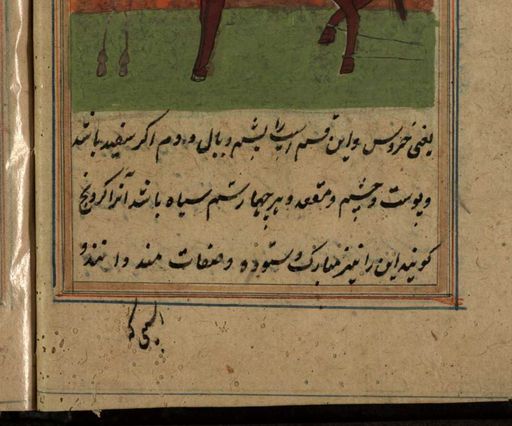 یعنی خروس و این قسم اسپ را پشم و یال و دوم اکر سفید باشد
و پوست و چشم و مقعد و هر چهار سم سیاه باشد آنرا کرونج
کویند این را نیز مبارک و ستوده و صفات مند دانند و